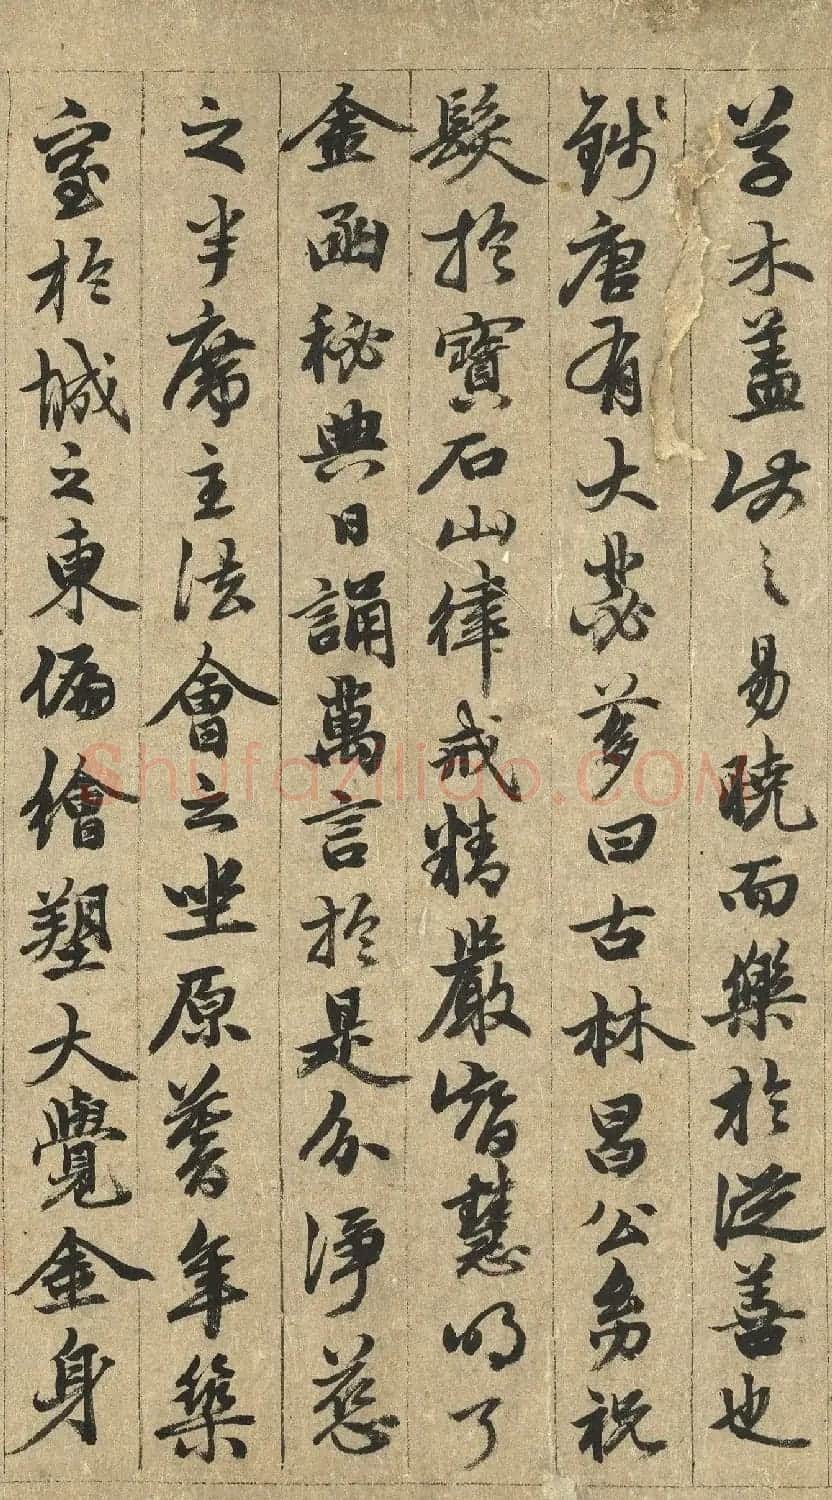 草木盖使之易曉而樂於從善也
錢唐有大苾芻曰古林昌公幼祝
髮於寶石山律戒精嚴智慧明了
金函秘典日誦萬言於是分淨慈
之半席主法會之坐原年築
室於城之東偏繪塑大覺金身
Shufaziliao.COM